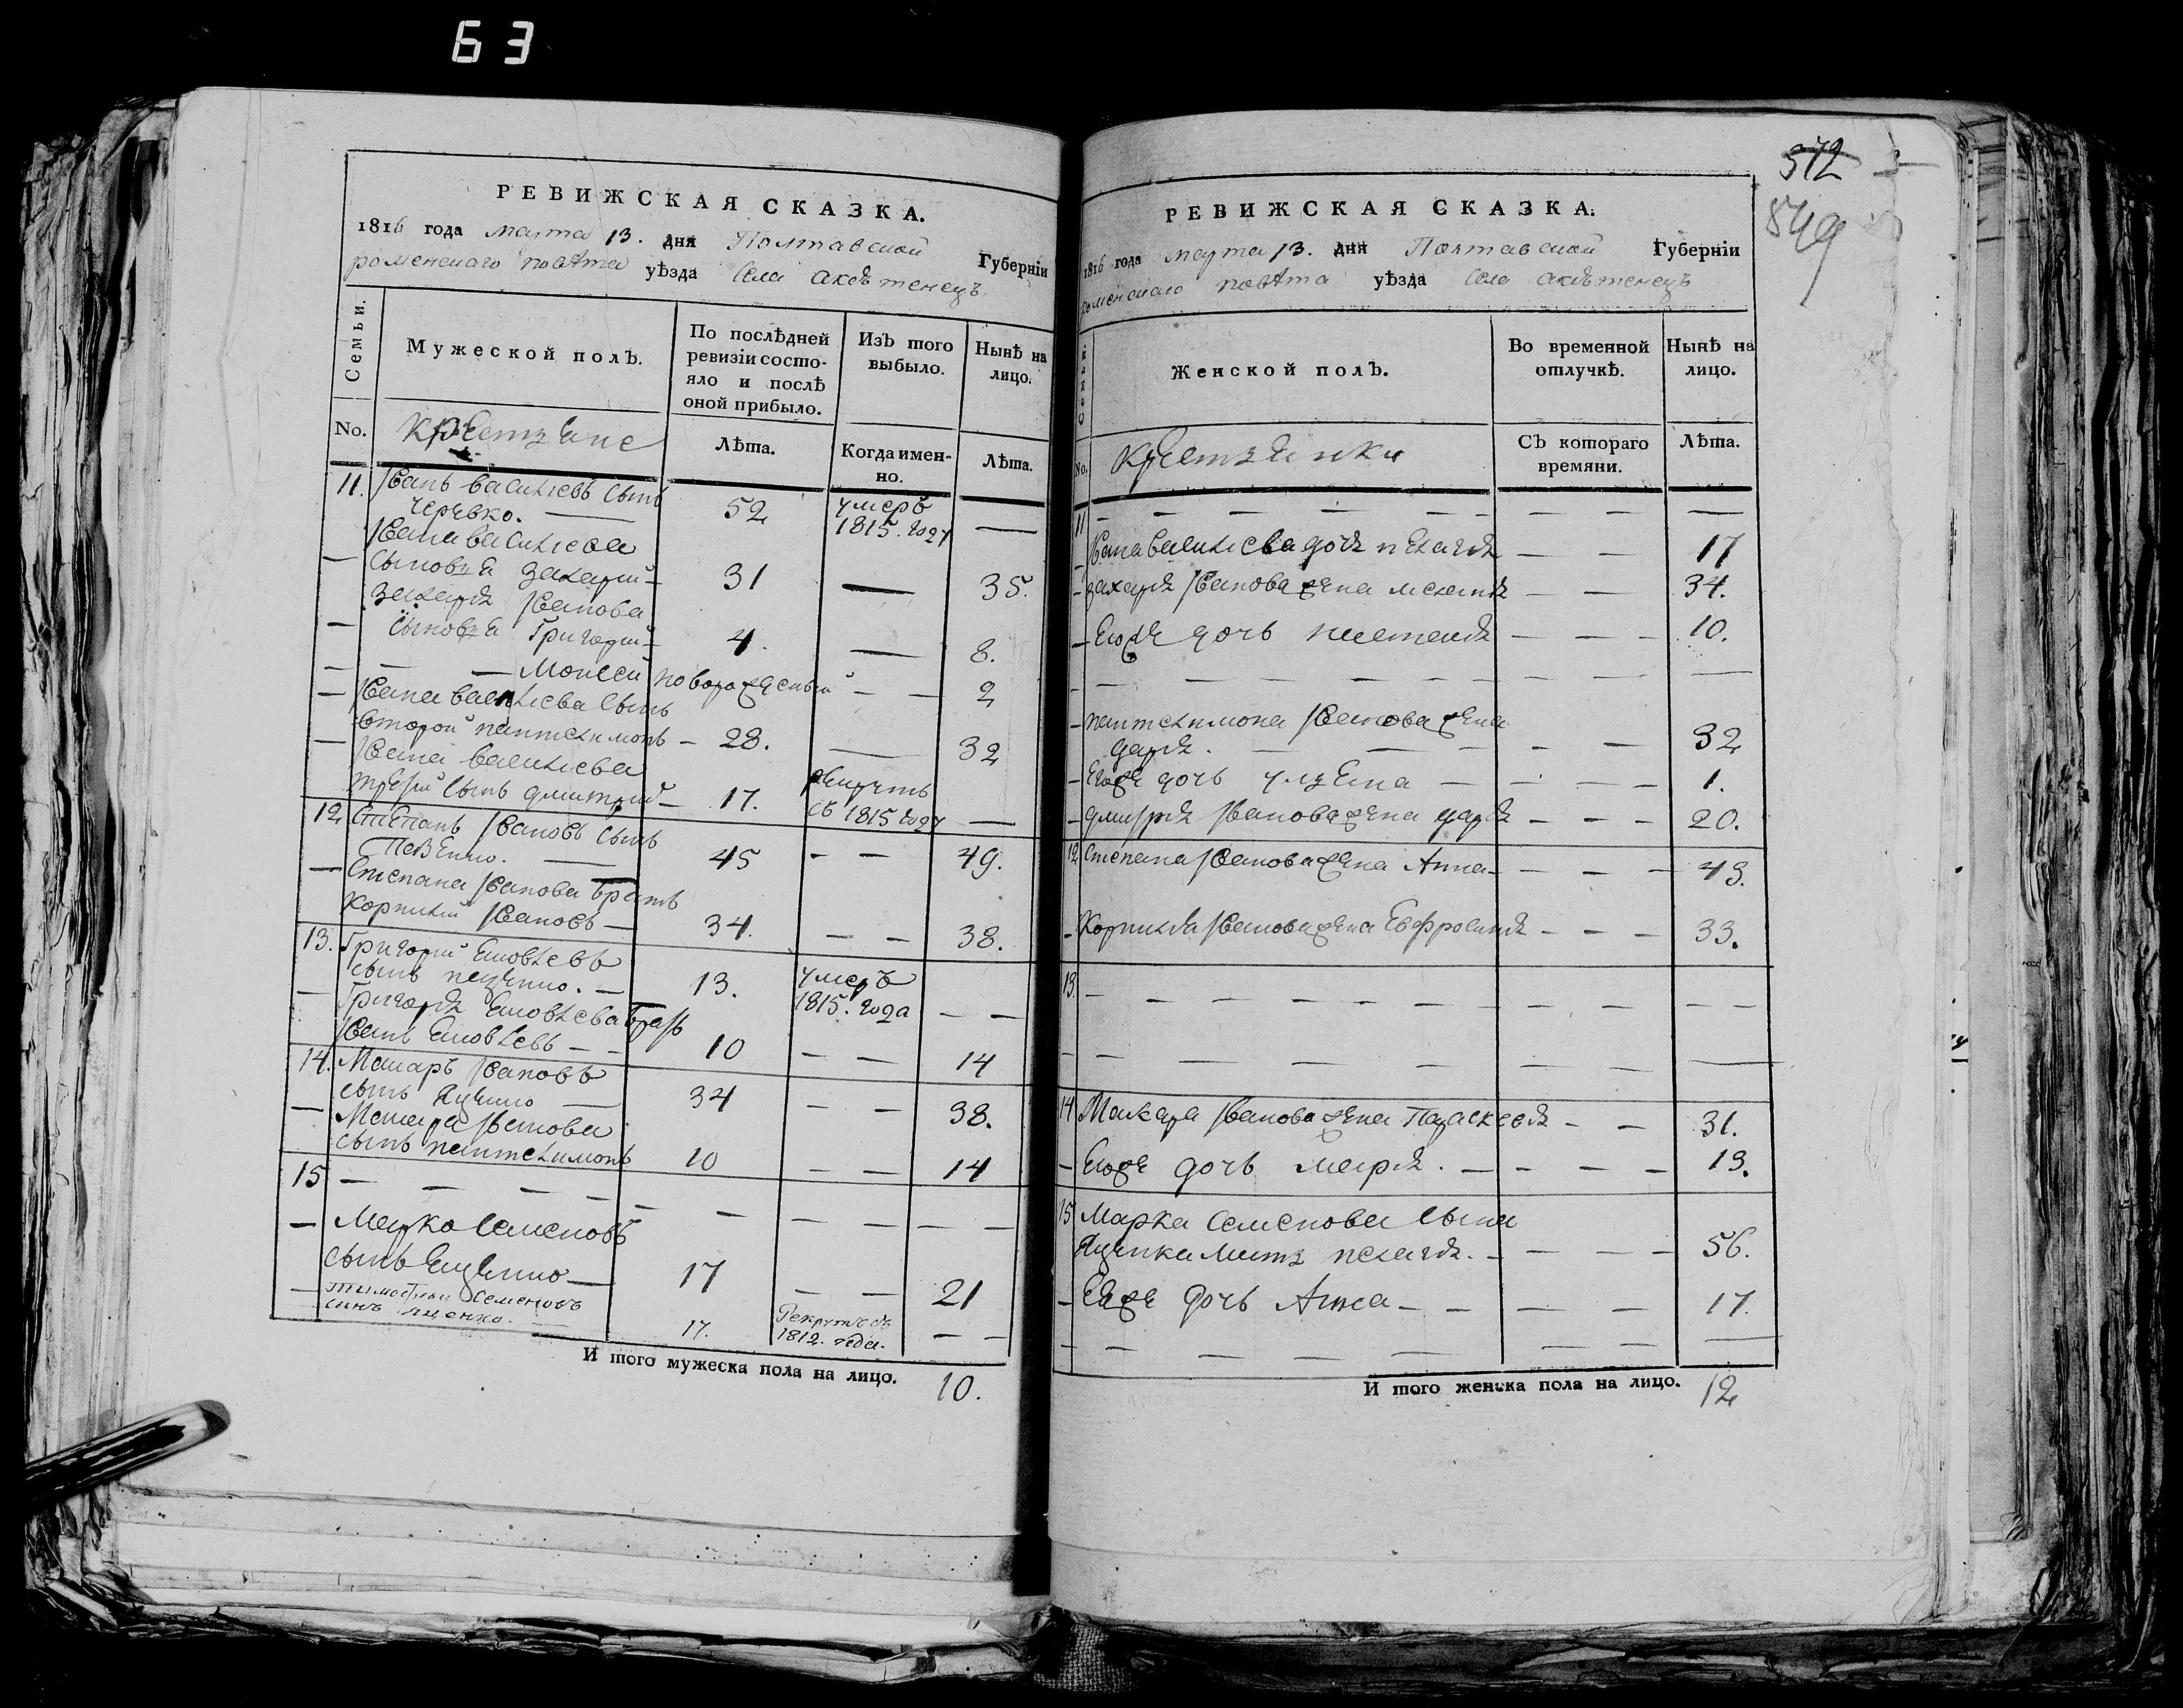 63
РЕВИЖСКАЯ СКАЗКА.
1816 года марта 13. дня Полтавской Губернїи
роменскаго повѣта уѣзда села
Семьи.
Мужеской полъ.
По послѣдней
ревизіи состо-
яло и послѣ
оной прибыло.
Изъ того
выбыло.
Нынѣ на
лицо.
No.
Лѣта.
Когда имен-
но.
Лѣта.
11. Иванъ васильевъ сынъ
Черевко. 52 умеръ
1815. году
Ивана васильева
сыновья захарий 31 35.
захарія Иванова
сыновья григорий 4. 8.
Моисей новорожденный 2
Ивана васильева сынъ
второй пантелимонъ 28. 32
Ивана васильева
третий сынъ дмитрий 17. рекрутъ
съ 1815 году
12 Степанъ Ивановъ сынъ
45 49.
Степана Иванова братъ
корнилий Ивановъ 34. 38.
13. Григорий
сынъ 13. умеръ
1815. года
Григорія братъ
Иванъ 10 14
14. Макаръ Ивановъ
сынъ Яценко 34 38.
Макара Иванова
сынъ пантелимонъ 10 14
15
Марко Семеновъ
сынъ Яценко 17 21
Тимофий Семеновъ
синъ яценко. 17. Рекрутъ съ
1812. года.
И того мужеска пола на лицо. 10.
572
549
РЕВИЖСКАЯ СКАЗКА.
1816 года марта 13. дня Полтавской Губернїи
роменскаго повѣта уѣзда села
Семьи.
Женской полъ.
Во временной
отлучкѣ.
Нынѣ на
лицо.
No.
Съ котораго
времяни.
Лѣта.
11
Ивана васильева дочь пелагія 17
захарія Иванова жена 34.
Его же дочь 10.
пантелимона Иванова жена
дарія. 32
Его же дочь улияна 1.
дмитрія Иванова жена дарія 20.
12 Степана Иванова жена Анна 43.
Корнилія Иванова жена Евфросинія 33.
13.
14 Макара Иванова жена Параскевія 31.
Его же дочь марія. 13.
15 Марка Семенова сына
Яценка мать пелагія. 56.
Ея же дочь Анна 17.
И того женска пола на лицо. 12